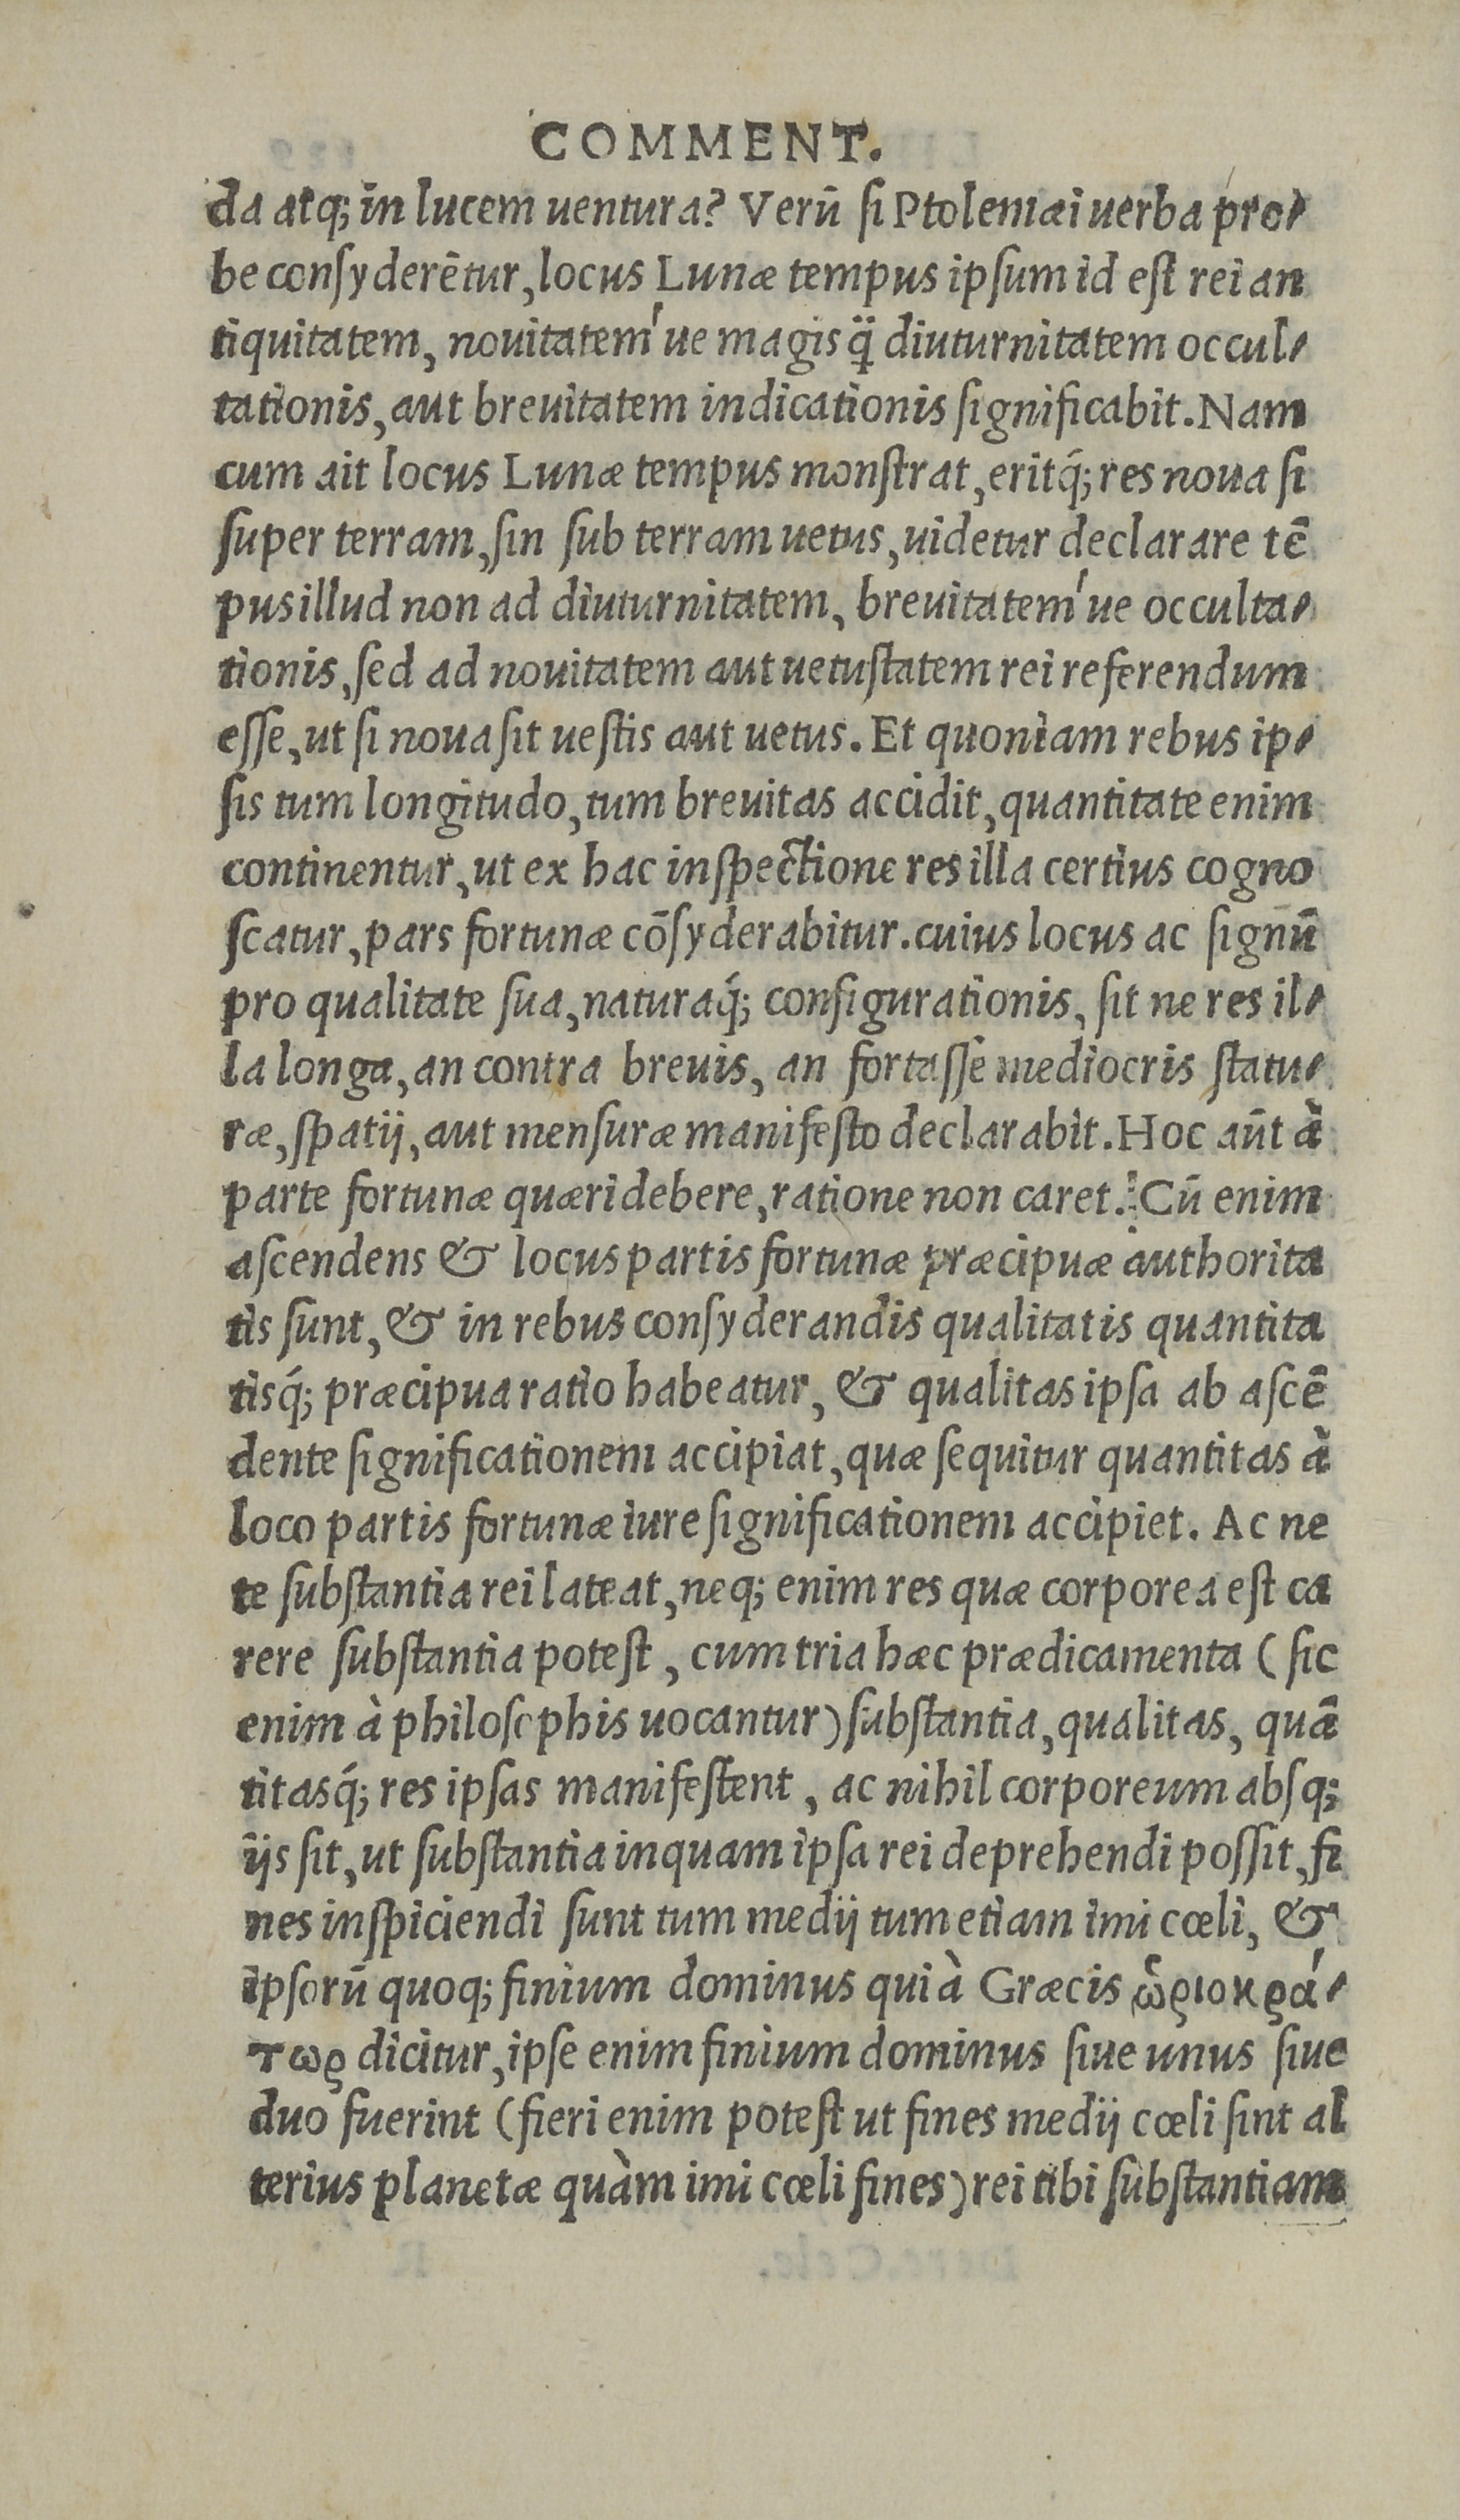 COMMENT.
da atq; in lucem uentura? Verū ſi Ptolemæi uerba pro-
be conſyderētur, locus Lunæ tempus ipſum id eſt rei an
tiquitatem, nouitatem'ue magis q̈ diuturnitatem occul-
tationis, aut breuitatem indicationis ſignificabit. Nam
cum ait locus Lunæ tempus monſtrat, eritq́; res noua ſi
ſuper terram, ſin ſub terram uetus, uidetur declarare tē
pus illud non ad diuturnitatem, breuitatem'ue occulta-
tionis, ſed ad nouitatem aut uetuſtatem rei referendum
eſſe, ut ſi noua ſit ueſtis aut uetus. Et quoniam rebus ip-
ſis tum longitudo, tum breuitas accidit, quantitate enim
continentur, ut ex hac inſpectione res illa certius cogno
ſcatur, pars fortunæ cōſyderabitur. cuius locus ac ſignū
pro qualitate ſua, naturaq́; configurationis, ſit ne res il-
la longa, an contra breuis, an fortaſſe mediocris ſtatu-
ræ, ſpatij, aut menſuræ manifeſto declarabit. Hoc aūt à
parte fortunæ quæri debere, ratione non caret. Cū enim
aſcendens & locus partis fortunæ præcipuæ authorita
tis ſunt, & in rebus conſyderandis qualitatis quantita
tisq́; præcipua ratio habeatur, & qualitas ipſa ab aſcē
dente ſignificationem accipiat, quæ ſequitur quantitas à
loco partis fortunæ iure ſignificationem accipiet. Ac ne
te ſubſtantia rei lateat, neq; enim res quæ corporea eſt ca
rere ſubſtantia poteſt, cum tria hæc prædicamenta (ſic
enim à philoſophis uocantur) ſubſtantia, qualitas, quā
titasq́; res ipſas manifeſtent, ac nihil corporeum abſq;
ijs ſit, ut ſubſtantia inquam ipſa rei deprehendi poſſit, fi
nes inſpiciendi ſunt tum medij tum etiam imi cœli, &
ipſorū quoq; finium dominus qui à Græcis ὡριοκρά-
τωρ dicitur, ipſe enim finium dominus ſiue unus ſiue
duo fuerint (fieri enim poteſt ut fines medij cœli ſint al
terius planetæ quàm imi cœli fines) rei tibi ſubſtantiam